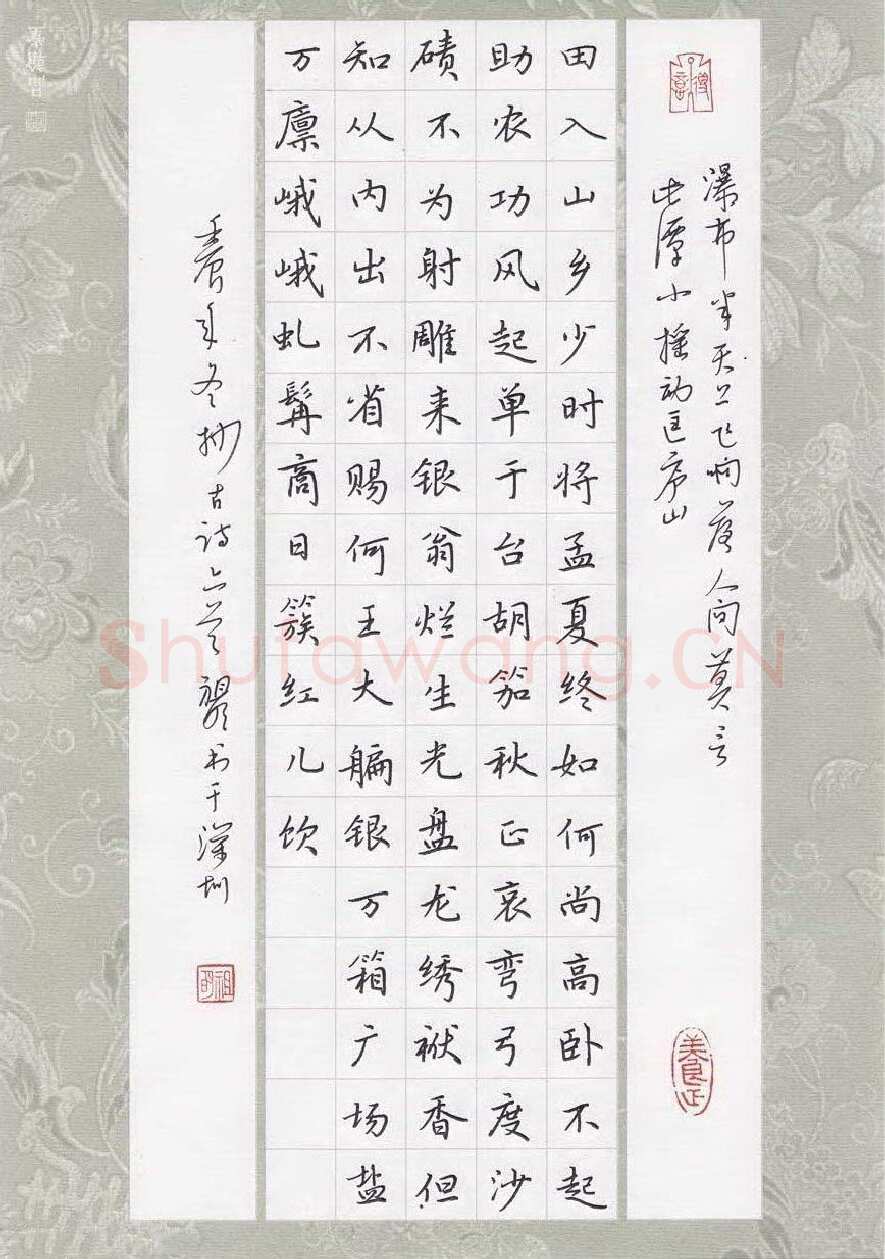 得意
瀑布半天上飞响落人间莫言
此潭小摇动匡庐山
養正
田入山乡少时将孟夏终如何尚高卧不起
助农功风起单于台胡笳秋正哀弯弓度沙
碛不为射雕来银翁烂生光盘龙绣袱香但
知从内出不省赐何王大艑银万箱广场盐
万廪峨峨虬髯商日簇红儿饮
壬辰年冬抄古诗六首 书于深圳
Shufawang.CN